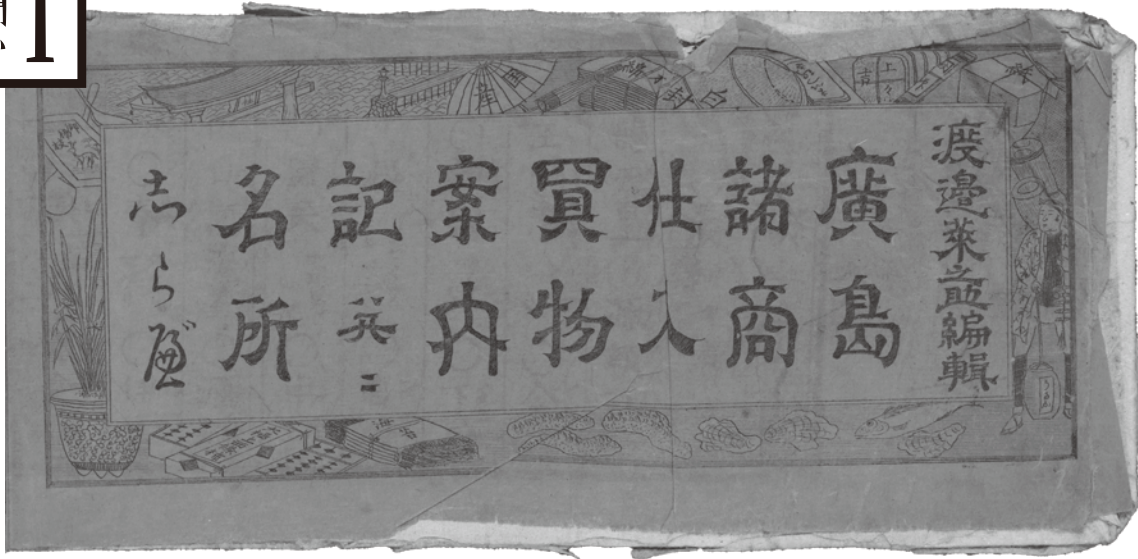 1
渡邊萊之助編輯
廣島
諸商
仕入
買物
案内
記并ニ
名所
志らべ
上々吉